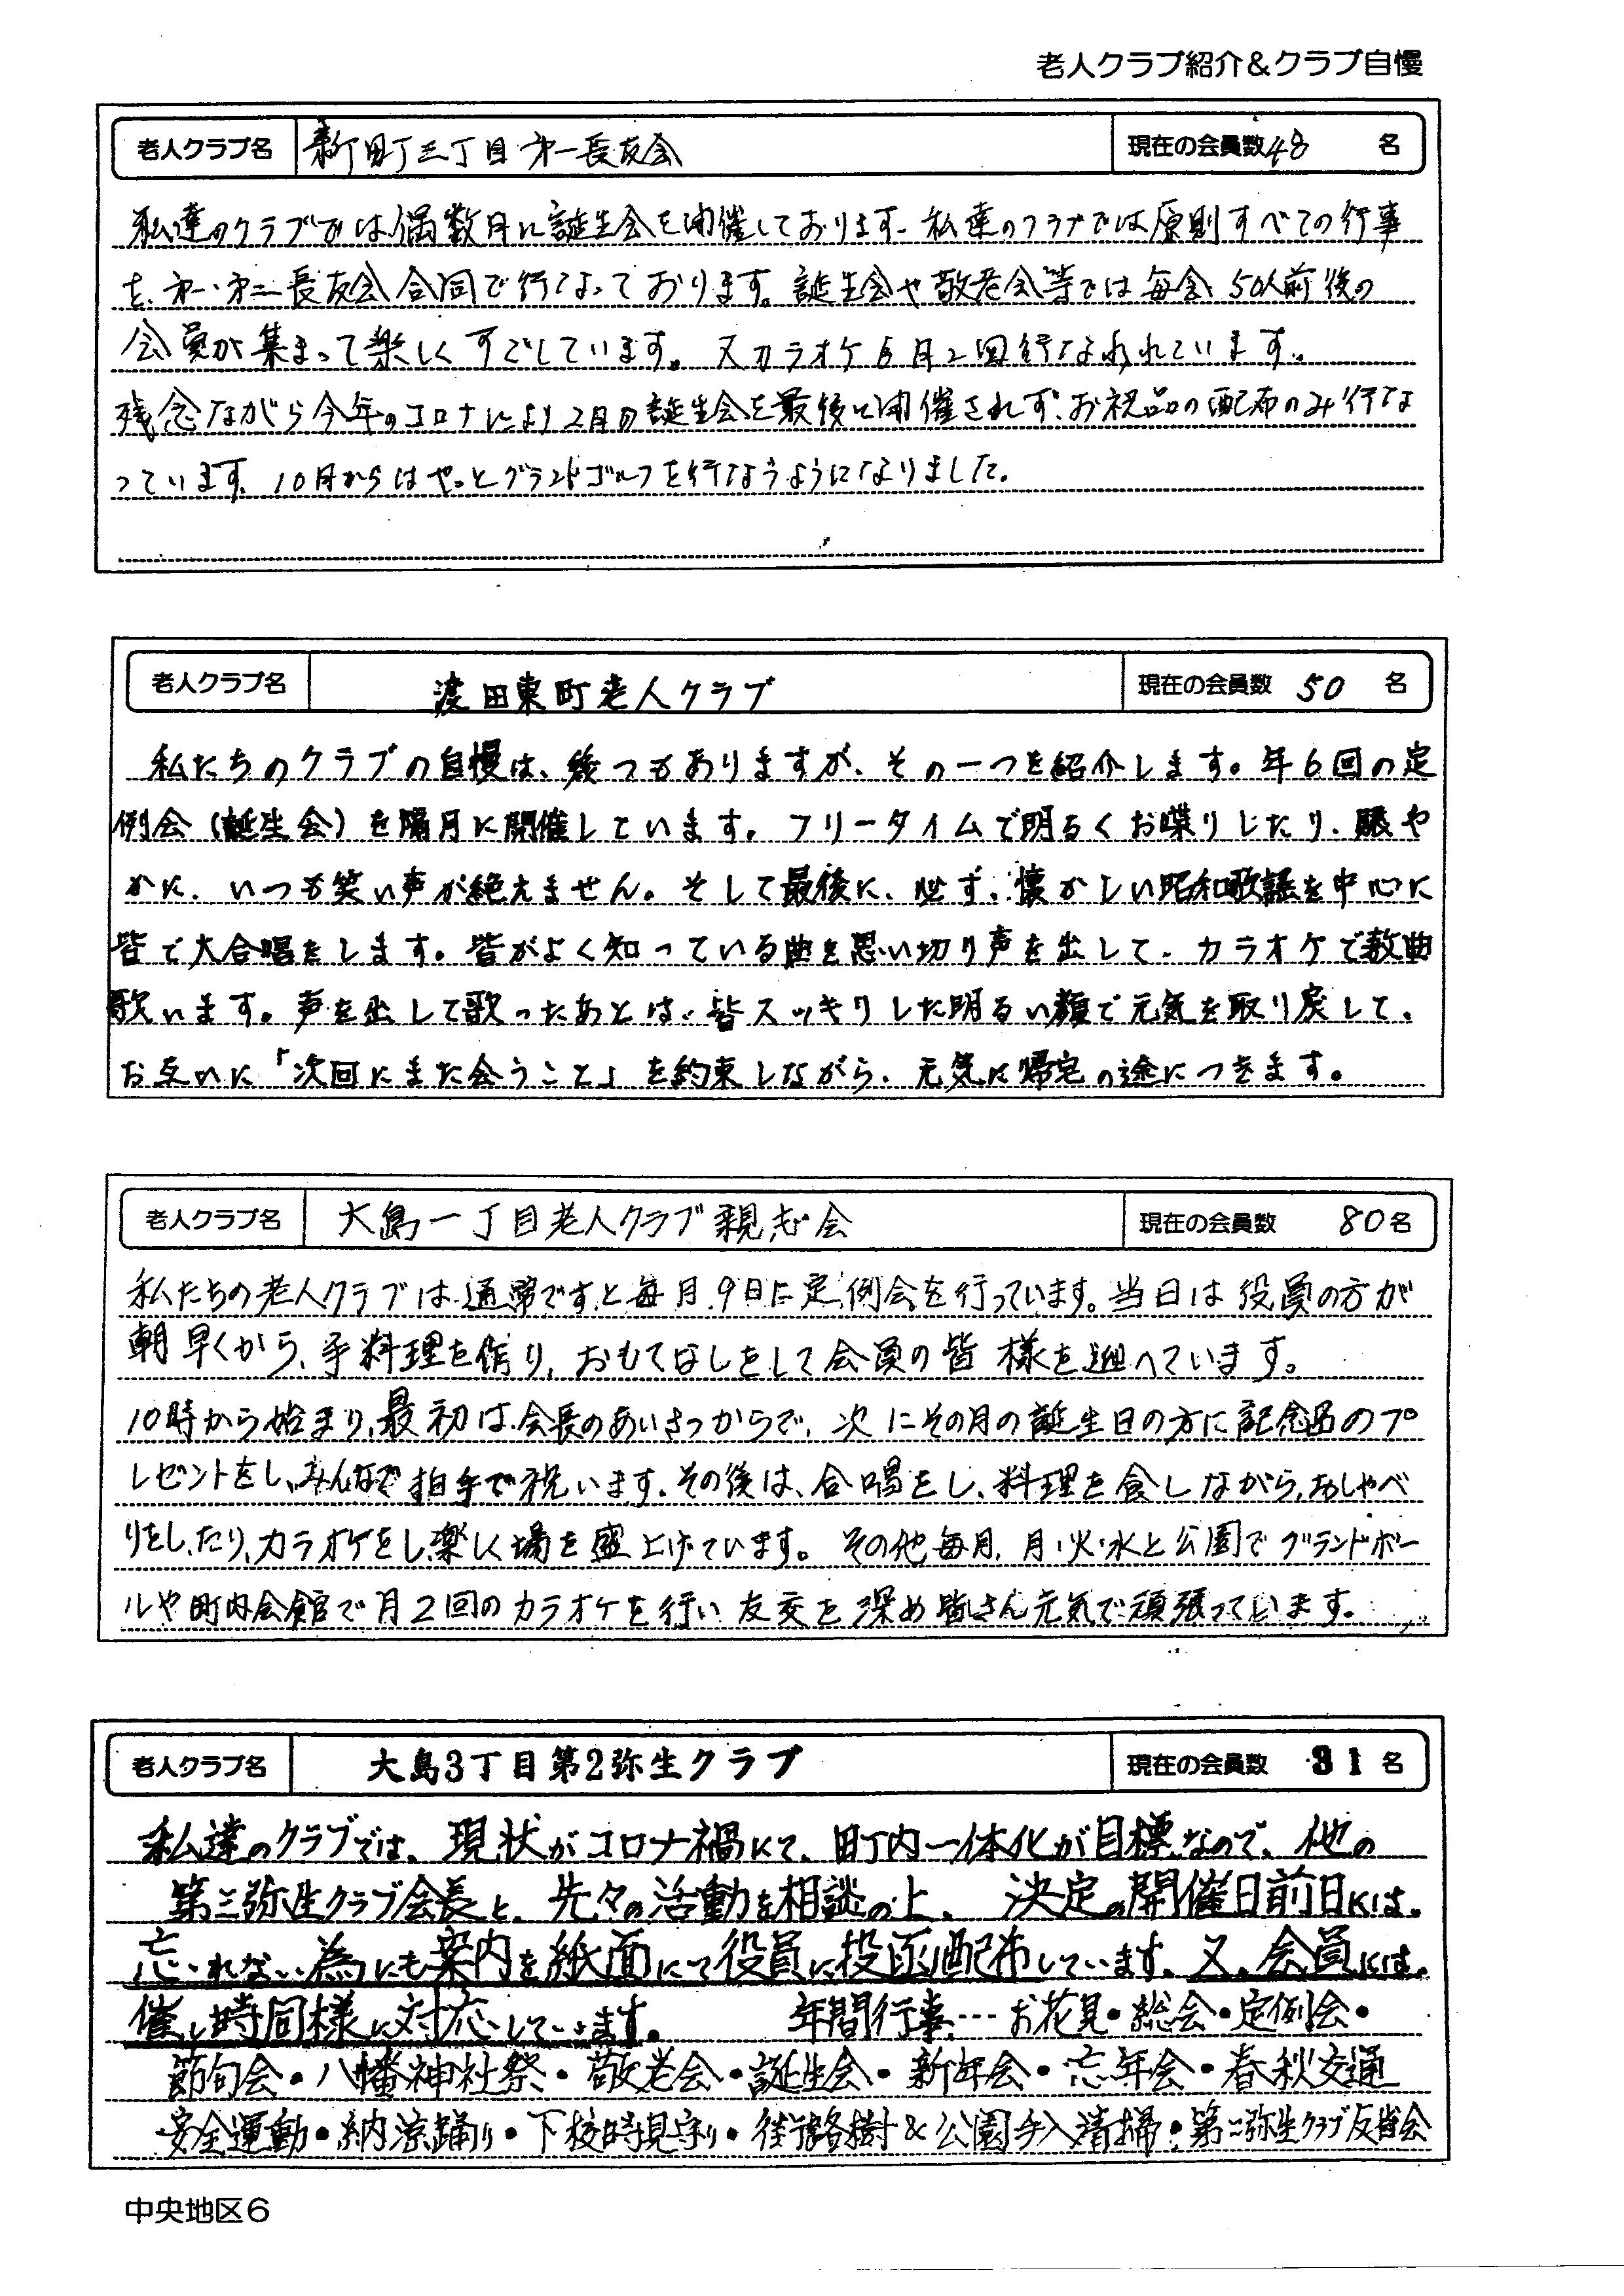 老人クラブ紹介&クラブ自慢
老人クラブ名 新町三丁目第一長友会 現在の会員数48 名
私達のクラブでは偶数月に誕生会を開催しております。私達のクラブでは原則すべての行事
を、第一・第二長友会合同で行なっております。誕生会や敬老会等では毎会50人前後の
会員が集まって楽しくすごしています。又カラオケも月2回行なわれています。
残念ながら今年のコロナにより2月の誕生会を最後に開催されず、お祝品の配布のみ行な
っています、10月からはやっとグランドゴルフを行なうようになりました。
老人クラブ名 渡田東町老人クラブ 現在の会員数 50 名
私たちのクラブの自慢は、幾つもありますが、その一つを紹介します。年6回の定
例会(誕生会)を隔月に開催しています。フリータイムで明るくお喋りしたり、賑や
かに、いつも笑い声が絶えません。そして最後に、必ず、懐かしい昭和歌謡を中心に
皆で大合唱をします。皆がよく知っている曲を思い切り声を出して、カラオケで数曲
歌います。声を出して歌ったあとは、皆スッキリした明るい顔で元気を取り戻して、
お互いに「次回にまた会うこと」を約束しながら、元気に帰宅の途につきます。
老人クラブ名 大島一丁目老人クラブ親志会 現在の会員数 80名
私たちの老人クラブは通常ですと毎月9日に定例会を行っています。当日は役員の方が
朝早くから、手料理を作り、おもてなしをして会員の皆様を迎へています。
10時から始まり、最初は会長のあいさつからで、次にその月の誕生日の方に記念品のプ
レゼントをし、みんなで拍手で祝います。その後は、合唱をし、料理を食しながら、おしゃべ
りをしたり、カラオケをし楽しく場を盛上げています。その他毎月、月・火・水と公園でグランドボー
ルや町内会館で月2回のカラオケを行い友交を深め皆さん元気で頑張っています。
老人クラブ名 大島3丁目第2弥生クラブ 現在の会員数 31 名
私達のクラブでは、現状がコロナ禍にて、町内一体化が目標なので、他の
第三弥生クラブ会長と、先々の活動を相談の上、決定の開催日前日には、
忘れない為にも案内を紙面にて役員に投函配布しています。又、会員には、
催し時同様に対応しています。 年間行事…お花見・総会・定例会・
節句会・八幡神社祭・敬老会・誕生会・新年会・忘年会・春秋交通
安全運動・納涼踊り・下校時見守り・街路樹&公園手入清掃・第二弥生クラブ反省会
中央地区6